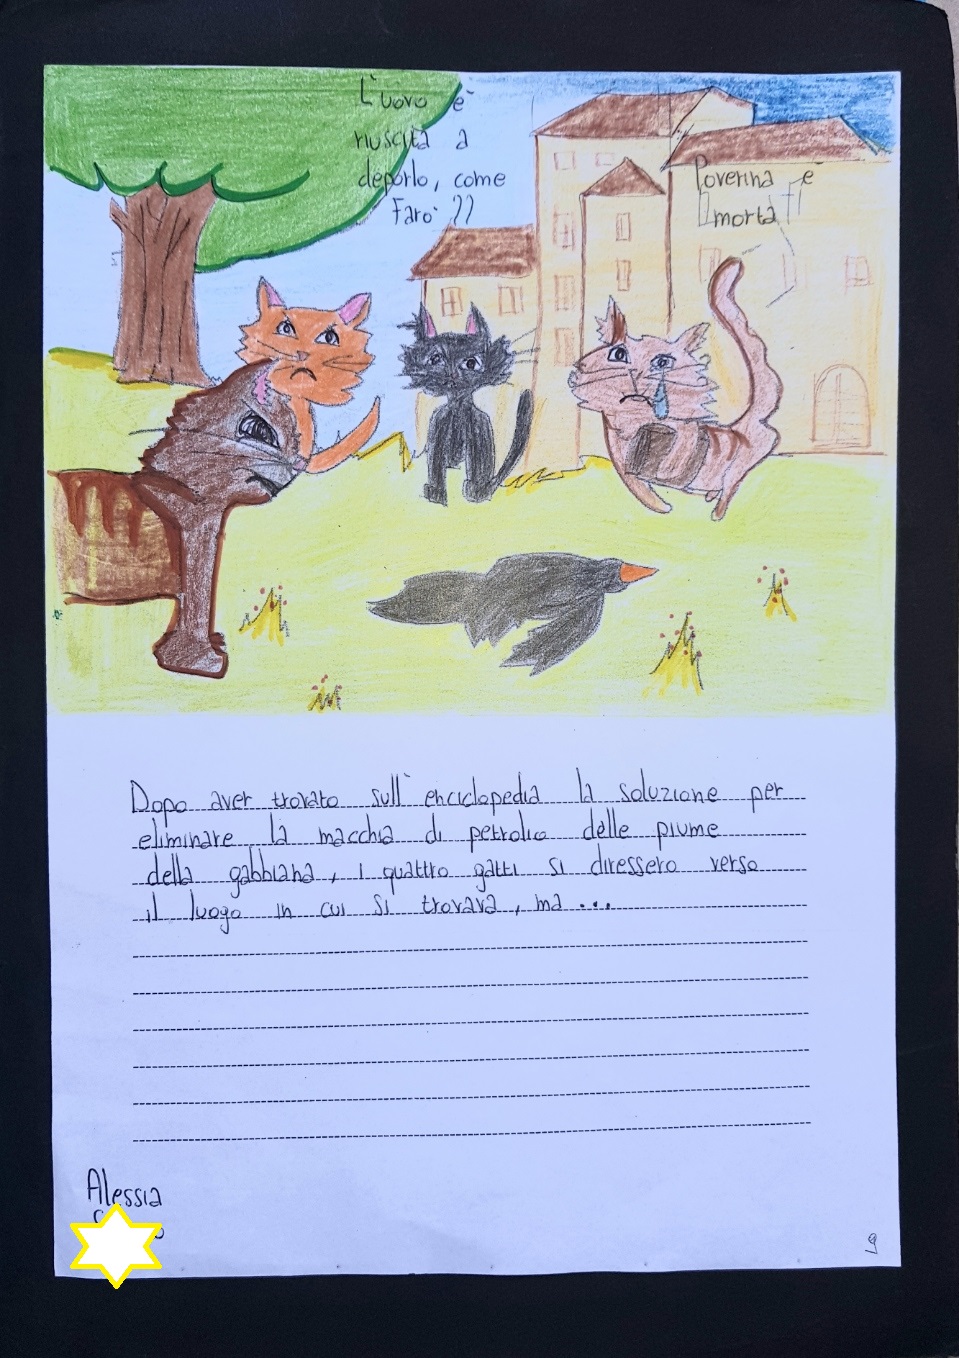 L'uovo è
riuscita a
deporlo, come
farò ??
Poverina è
morta
Dopo aver trovato sull'enciclopedia la soluzione per
eliminare la macchia di petrolio delle piume
della gabbiana, i quattro gatti si diressero verso
il luogo in cui si trovava, ma ...
Alessia
9